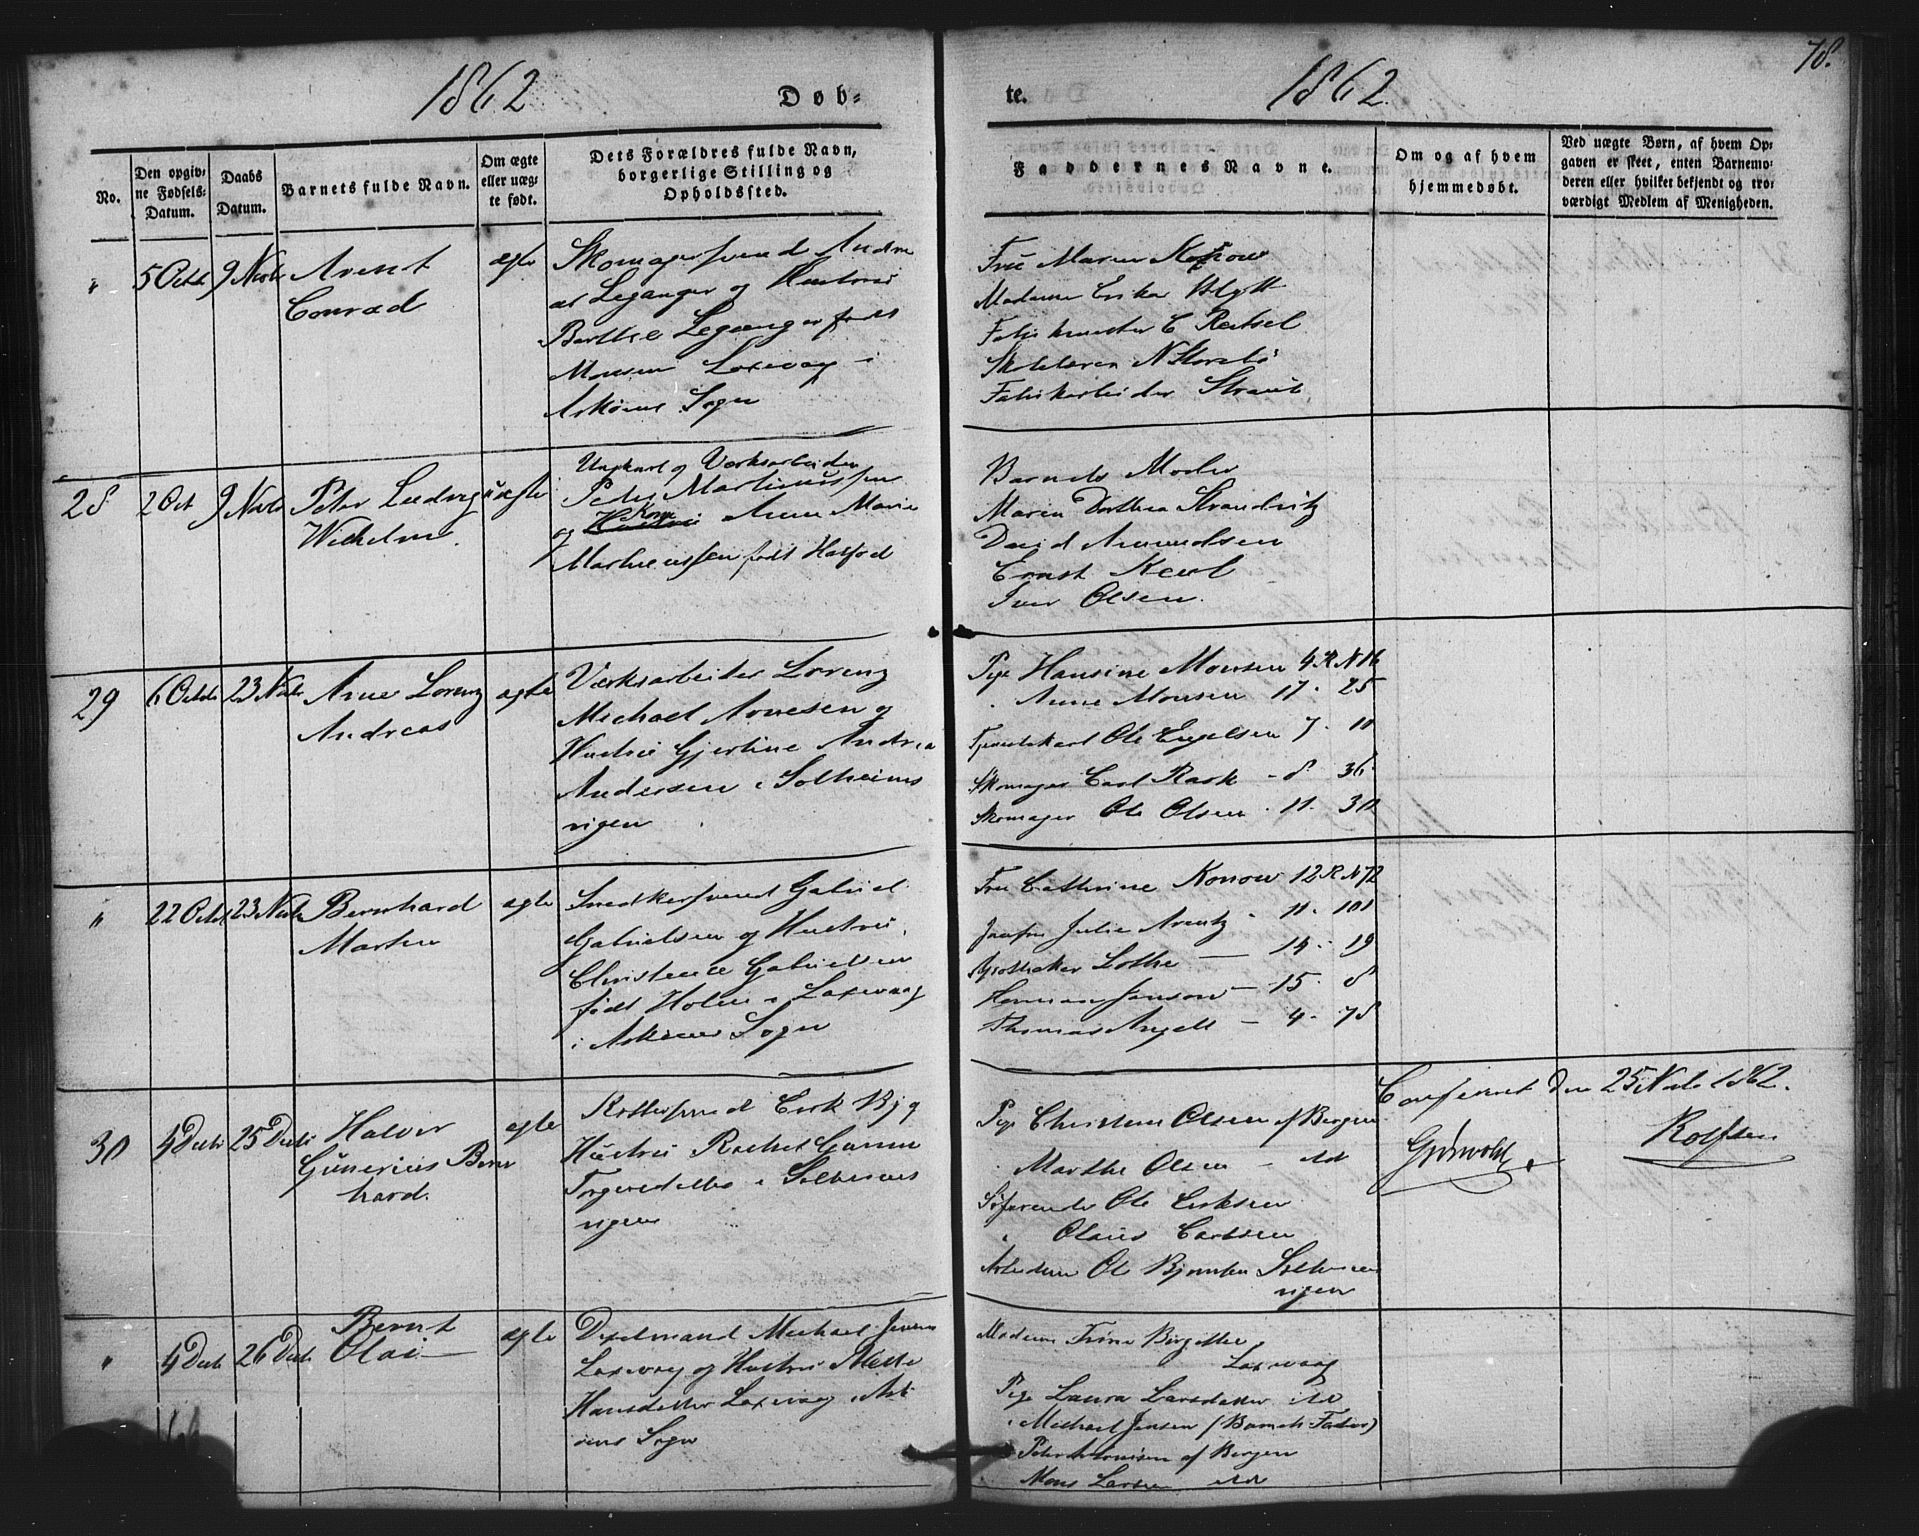 1862
Døb=
te.
1862
78.
No.
Den opgiv=
ne Fødsels=
Datum.
Daabs
Datum.
Barnets fulde Navn.
Om ægte
eller uæg=
te født.
Dets Forældres fulde Navn,
borgerlige Stilling og
Opholdssted.
Faddernes Navne.
Om og af hvem
hjemmedøbt.
Ved uægte Børn, af hvem Op=
gaven er skeet, enten Barnemo=
deren eller hvilket bekjendt og tro=
værdigt Medlem af Menigheden.
"
5 Octb
9 Novb
Arent
Conrad
ægte
Skomagersvend Andre
as Leganger og Hustrue
Berthe Leganger født
Monsen Laxevag i
Askøens Sogn
Frue Marie Konow
Madame Erika Blytt
C Reitsel
Fabrikarbeider
28
2 Oct
9 Novb
Peter Ludvig
Wilhelm
uægte
Ungkarl og Værksarbeider
Peder Martinussen
og Hustrue Kone Anne Marie
Martinussen født
Barnets Moder
Maren Dorthea
David Amundsen
Ernst
Iver Olsen.
29
6 Octb
23 Novb
Arne Lorenz
Andreas
ægte
Værksarbeider Lorenz
Michael Arnesen og
Hustrue Gjertine Andrea
Andersen i Solheims
vigen
Pige Hansine Monsen 4 R N 16
" Anne Monsen 17 - 25
Tjenestekarl Ole Engelsen 7 - 10
Skomager Carl Rask - 8 36
Skomager Ole Olsen - 11 - 30
"
22 Octb
23 Novb
Bernhard
Martin
ægte
Snedkersvend Gabriel
Gabrielsen og Hustrue
Christence Gabrielsen
født Holm i Laxevaag
i Askøens Sogn
Frue Cathrine Konow 12 R N 72
Jomfru Julie Arentz - 11 - 101
Apotheker Lothe — 14 - 19
Herman Janson — 15 - 8
Thomas Angell — 4 - 78
30
4 Decb
25 Decb
Halvor
Gunerius Bern
hard.
ægte
Erik
Hustrue Rachel
Torgersdatter i Solheims
vigen
Pige Christine Olsen af Bergen
" Marthe Olsen — itd
Søfarende Ole Eriksen
" Olaus Carlsen
Arbeideren Ole Solheims
vigen
Confereret den 25 Novb 1862.
Rolfsen
"
4 Decb
26 Decb
Bernt
Olai
ægte
Michael Jensen
Laxevaag og Hustrue Mette
Hansdatter Laxevaag i Ask
øens Sogn
Madame Trine Birgitte
Laxevaag
Pige Laura Larsdatter itd
" Michael Jensen (Barnets Fader)
af Bergen
Mons Larsen itd